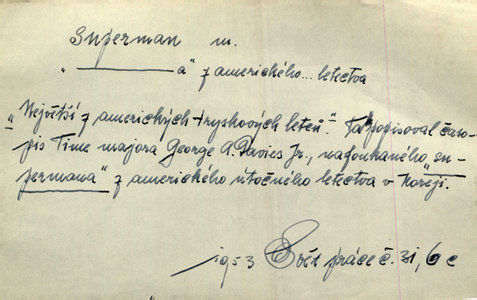 Superman m.
„ ——— a" z amerického... letectva
„Největší z amerických tryskových letců." Tak popisoval časo-
pis Time majora George A. Davies Jr., nafoukaného „su-
permana" z amerického útočného letectva v Koreji.
1953 Svět práce č. 31, 6 c